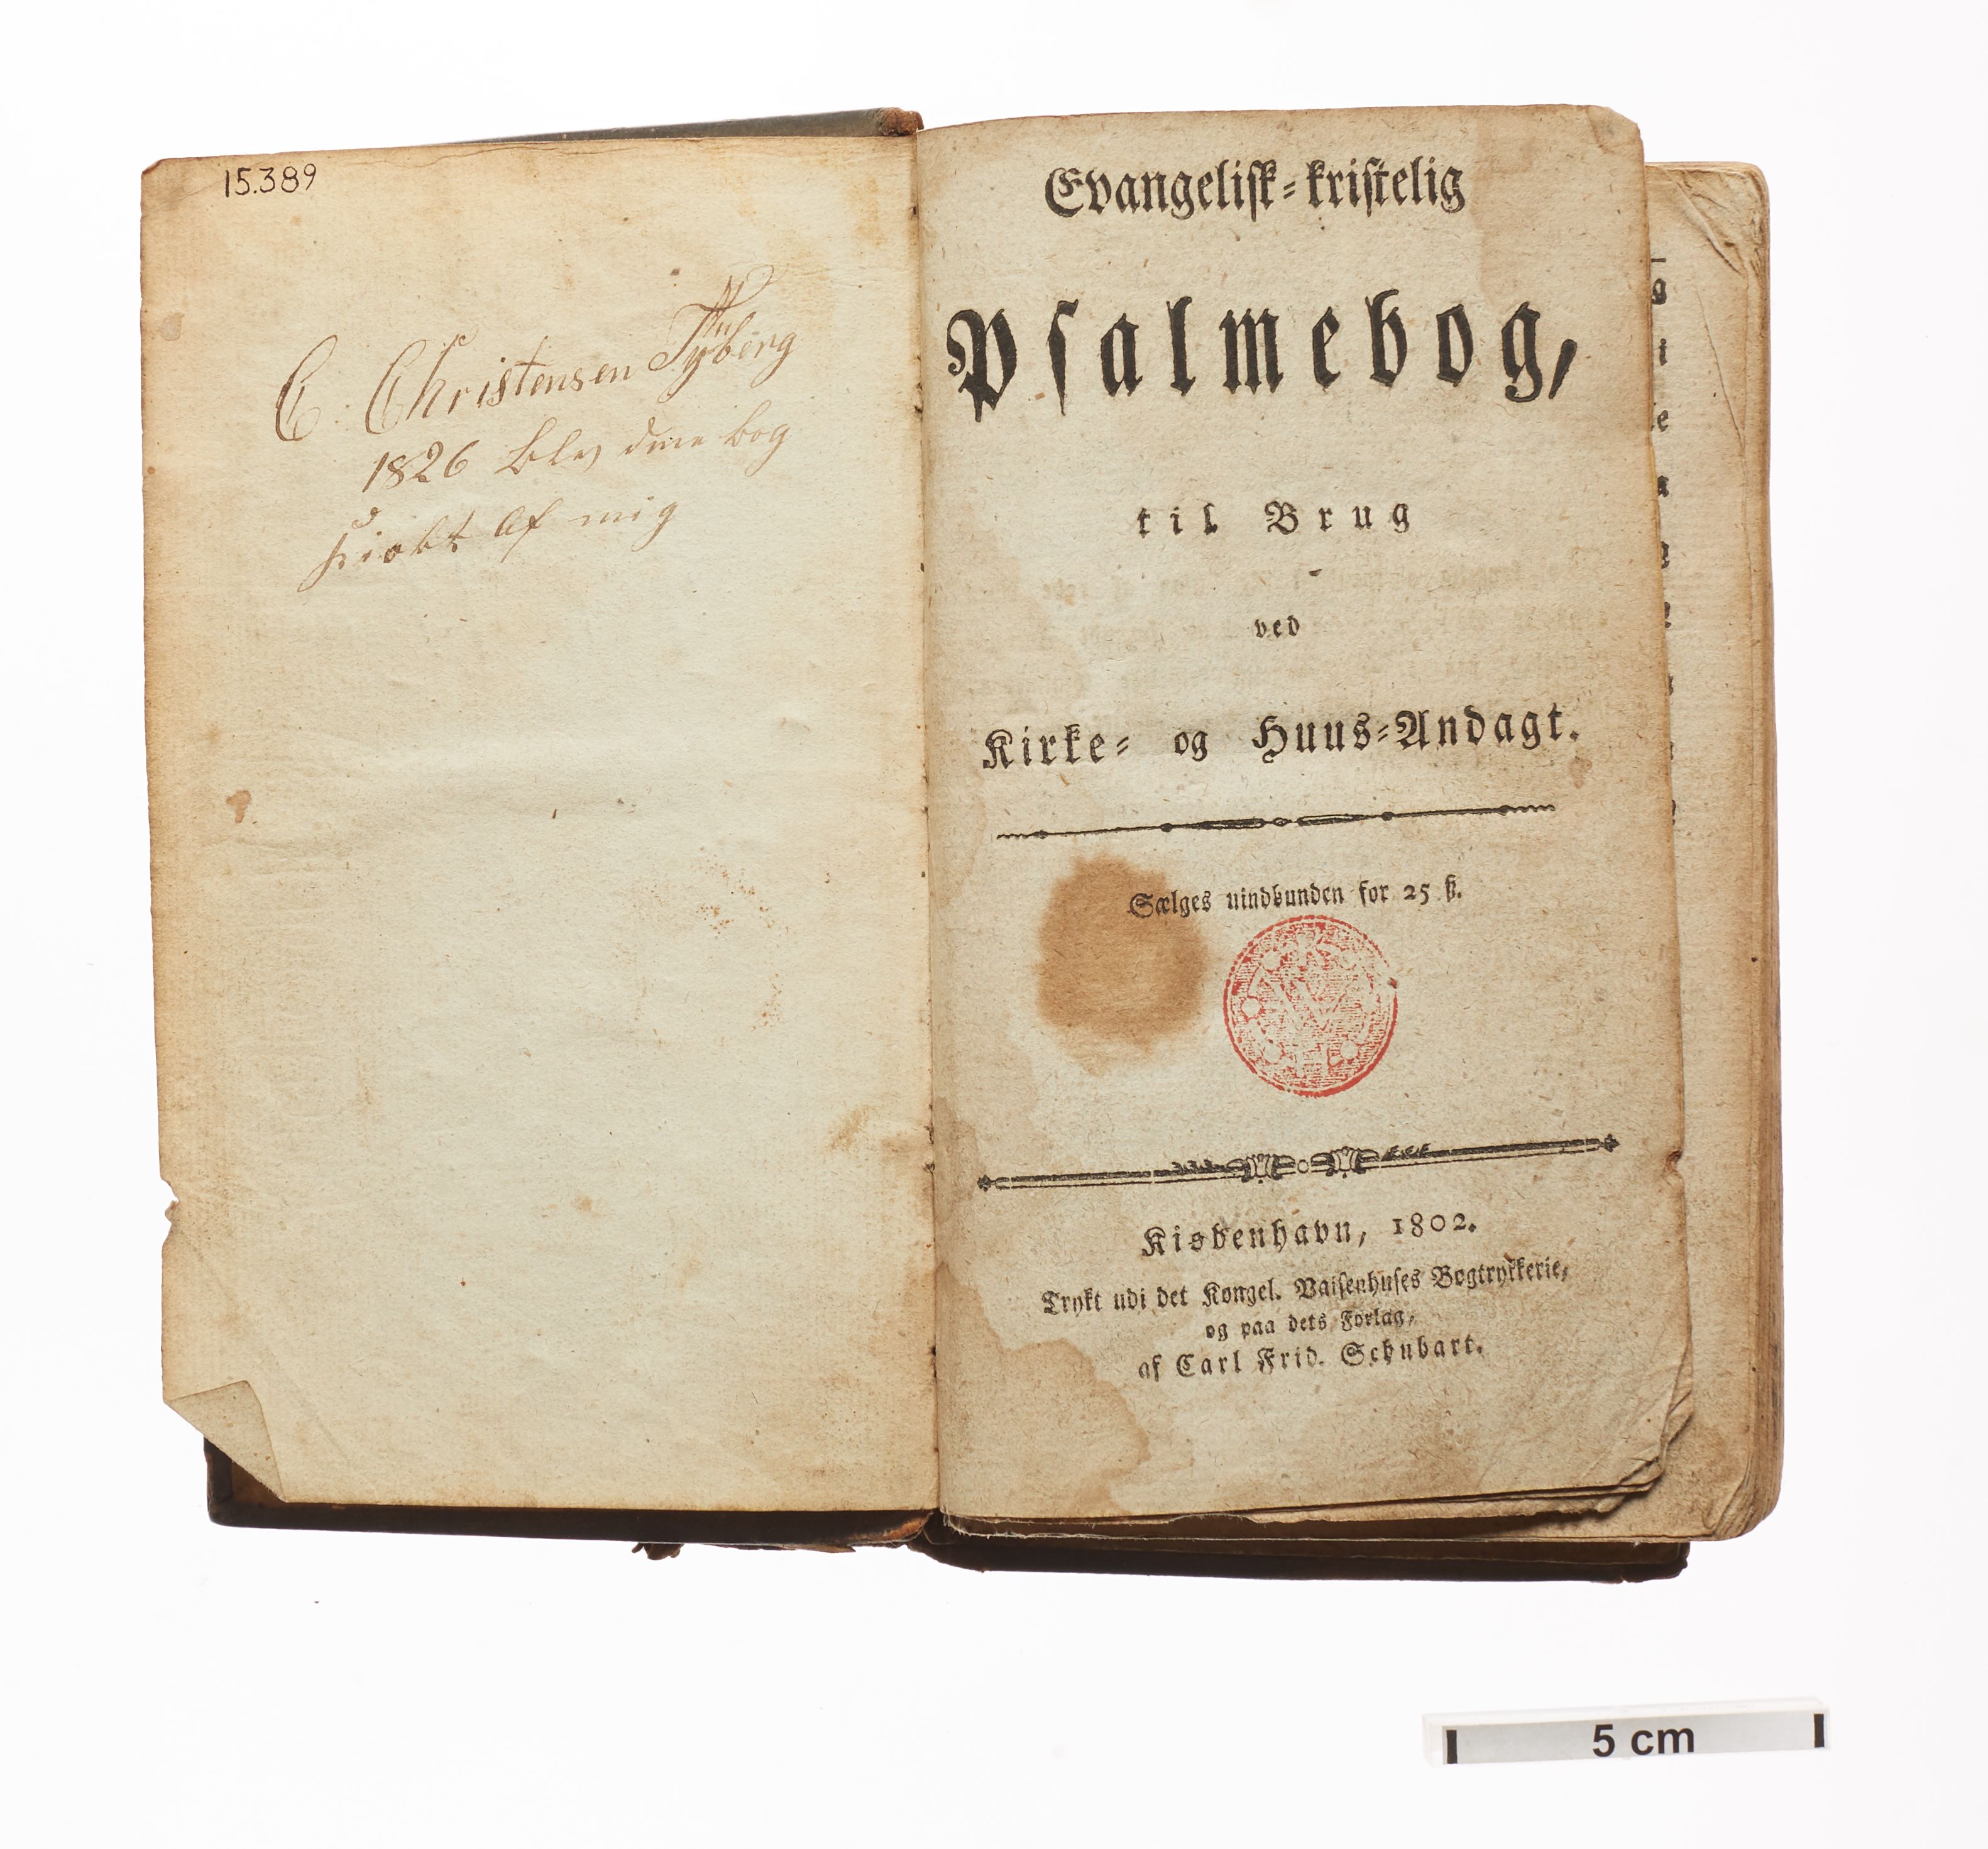 15.389
C: Christensen Tyberg
1826 blev dene bog
kiøbt af mig
Evangelisk-kristelig
Psalmebog,
til Brug
ved
Kirke- og Huus-Andagt.
Sælges uindbunden for 25 ß.
Kiøbenhavn, 1802.
Trykt udi det Kongel. Vaisenhuses Bogtrykkerie,
og paa dets Forlag,
af Carl Frid. Schubart.
5 cm